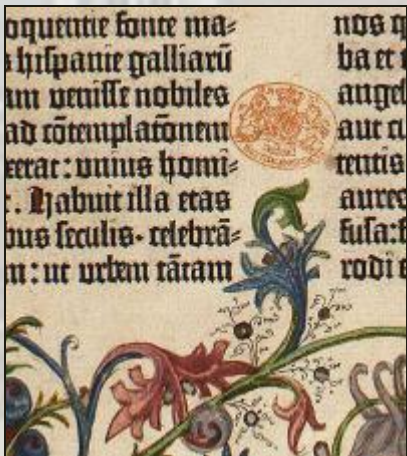 oquentie fonte ma⸗
hispanie galliarū
am venisse nobiles
ad cōtemplatōnem
xerat: vnius homi⸗
Habuit illa etas
bus seculis· celebrā⸗
m: ut urbem tātam
nos q
ba et
angel
aut
tentis
aures
fusa:
rodi